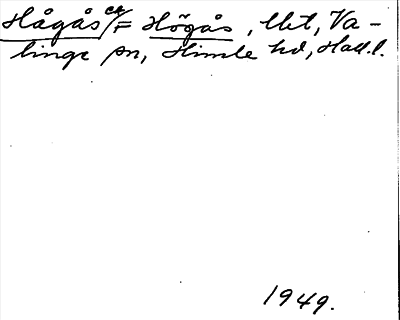 Hågås = Högås, Va-
linge sn, Himle hd, Hall. l.
1949.